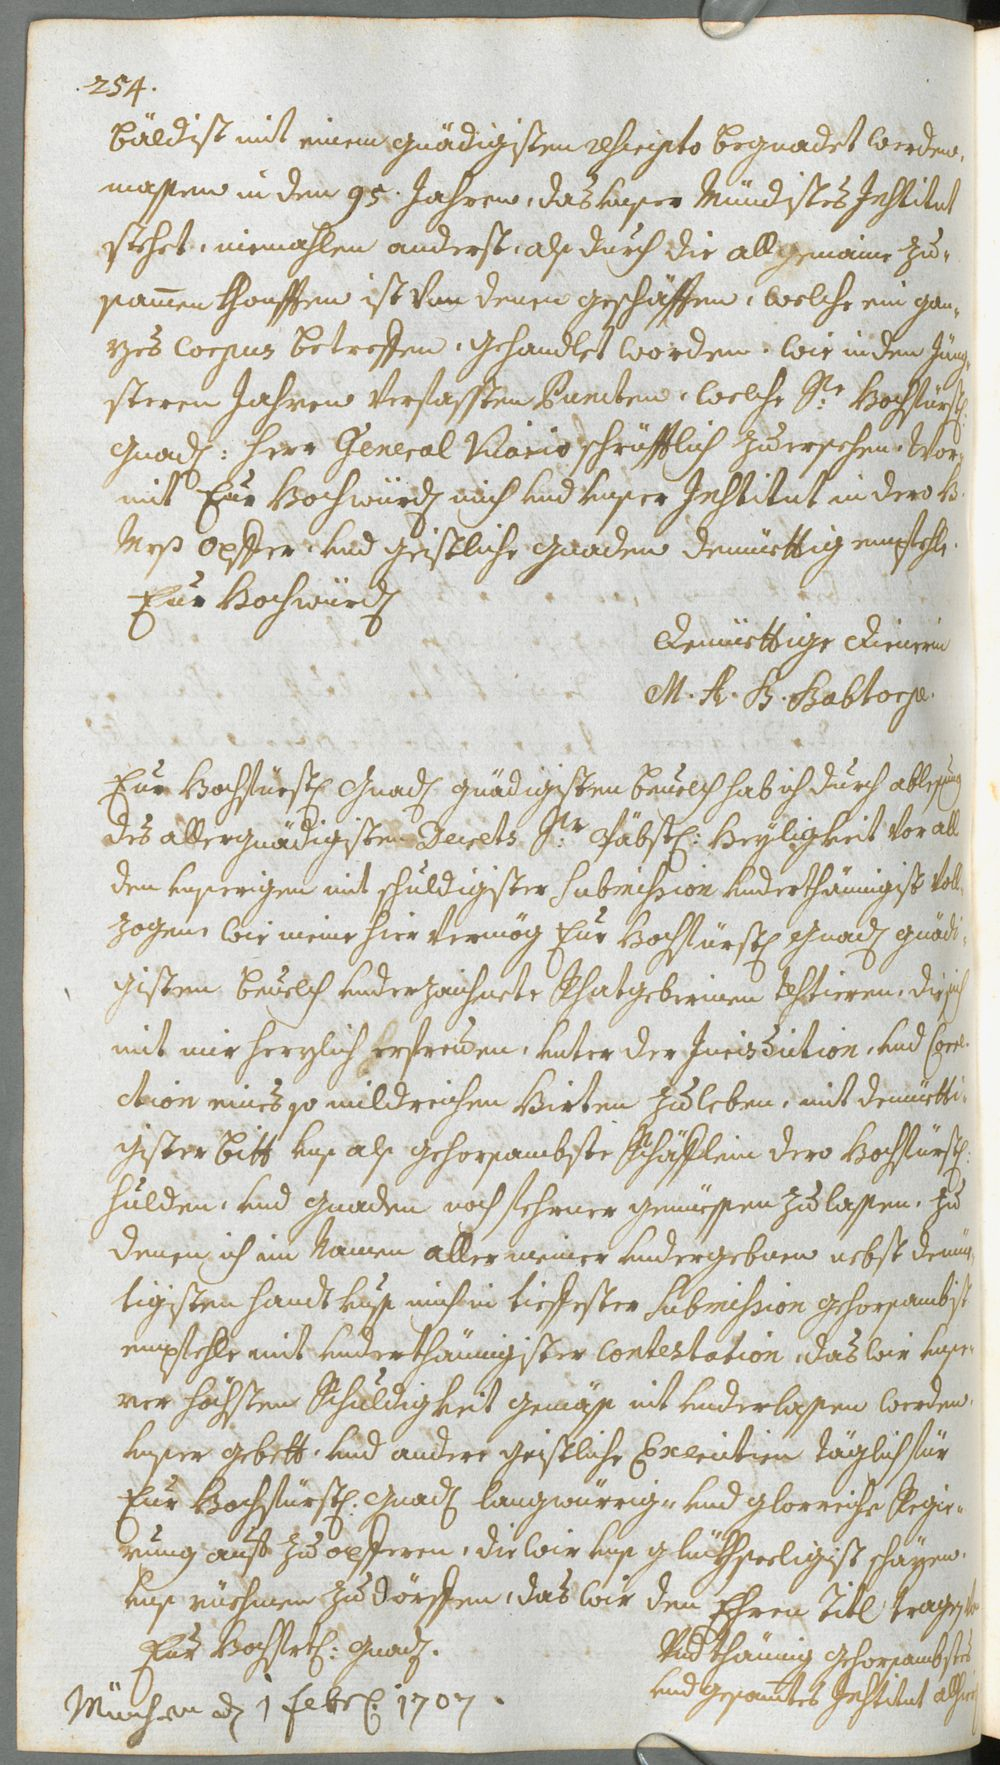 .254.
bäldist mit einem gnädigisten rescripto begnadet werden,
massen in den 95. Jahren, das unser Mündistes Institut
stehet, niemahlen anderst, als durch die allgemaine zu-
samen khonfften ist von denen geschäfften, welche ein gan-
zes Corpus betreffen, gehandlet worden. wie in den Jüng-
steren Jahren verfassten Puncten, welche Sr. Hochfürstl:
Gnad: Herr General Vicario schrüfftlich zuersehen. Wor-
mit Eur Hochwürd mich und unser Institut in dero H.
Mess opffer, und geistliche gnaden demüettig empfehle.
Eur Hochwürd
demüettige dienerin
M. A. B. Babtorp.
Eur Hochfürstl Gnad gnädigisten bevelch hab ich durch ablesung
des allergnädigisten Decrets Sr. Päbstl: Heyligkeit vor all
den unserigen mit schuldigister Submission underthänigist voll-
zogen, wie meine hier vermög Eur Hochfürstl Gnad gnädi-
gisten bevelch underzaichnete Rhatgeberinen testieren, die sich
mit mir herzlich erfreuen, unter der Jurisdiction, und Corre-
ction eines so mildreichen Hirten zuleben, mit demüetti-
gister bitt uns als gehorsambste Schäfflein dero Hochfürstl:
hulden, und gnaden noch fehrner geniessen zulassen. zu
denen ich im Namen aller meiner undergebnen nebst demüe-
tigisten handt kuss mich in tieffester Submission gehorsambist
empfehle mit underthänigister Contestation, das wir unse-
rer höchsten Schuldigkeit gemäss nit underlassen werden,
unser gebett, und andere geistliche Exercitien täglich für
Eur Hochfürstl: Gnad langwürrig- und glorreiche Regie-
rung auff zu opfferen, die wir uns glückhseeligist schäzen,
uns rüehmen zu dörffen, das wir den Ehren Titl tragen
Eur Hochfrtl: Gnad.
Undthänig gehorsambstes
und gesamtes Institut alhier
München den 1 Febr: 1707.